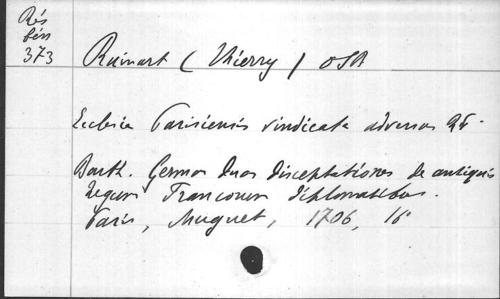 Rés
Gén
373
Ruinart (Thierry) OSB
Ecclesia Parisiensis vindicata adversus R.P.
Barth. Germon duas disceptationes de antiquis
regum Francorum diplomatibus.
Paris, Muguet, 1706, 16°